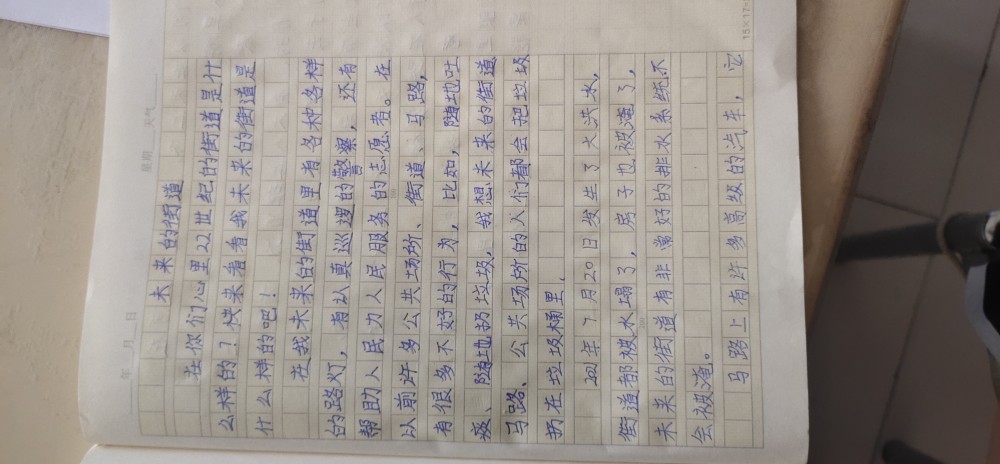 年 月 日 星期 天气
未来的街道
在你们心里22世纪的街道是什
么样的？快来看看我未来的街道是
什么样的吧！
在我未来的街道里有各种各样
的路灯，有认真巡逻的警察，还有
帮助人民力人民服务的志愿者。在
以前许多公共场所、街道、马路，
有很多不好的行为，比如，随地吐
痰、随地扔垃圾，我想未来的街道
马路、公共场所的人们都会把垃圾
扔在垃圾桶里，
2021年7月20日发生了大洪水，
街道都被水塌了，房子也被淹了，
未来的街道有非常好的排水系统不
会被淹。
马路上有许多高级的汽车，它
15×17=